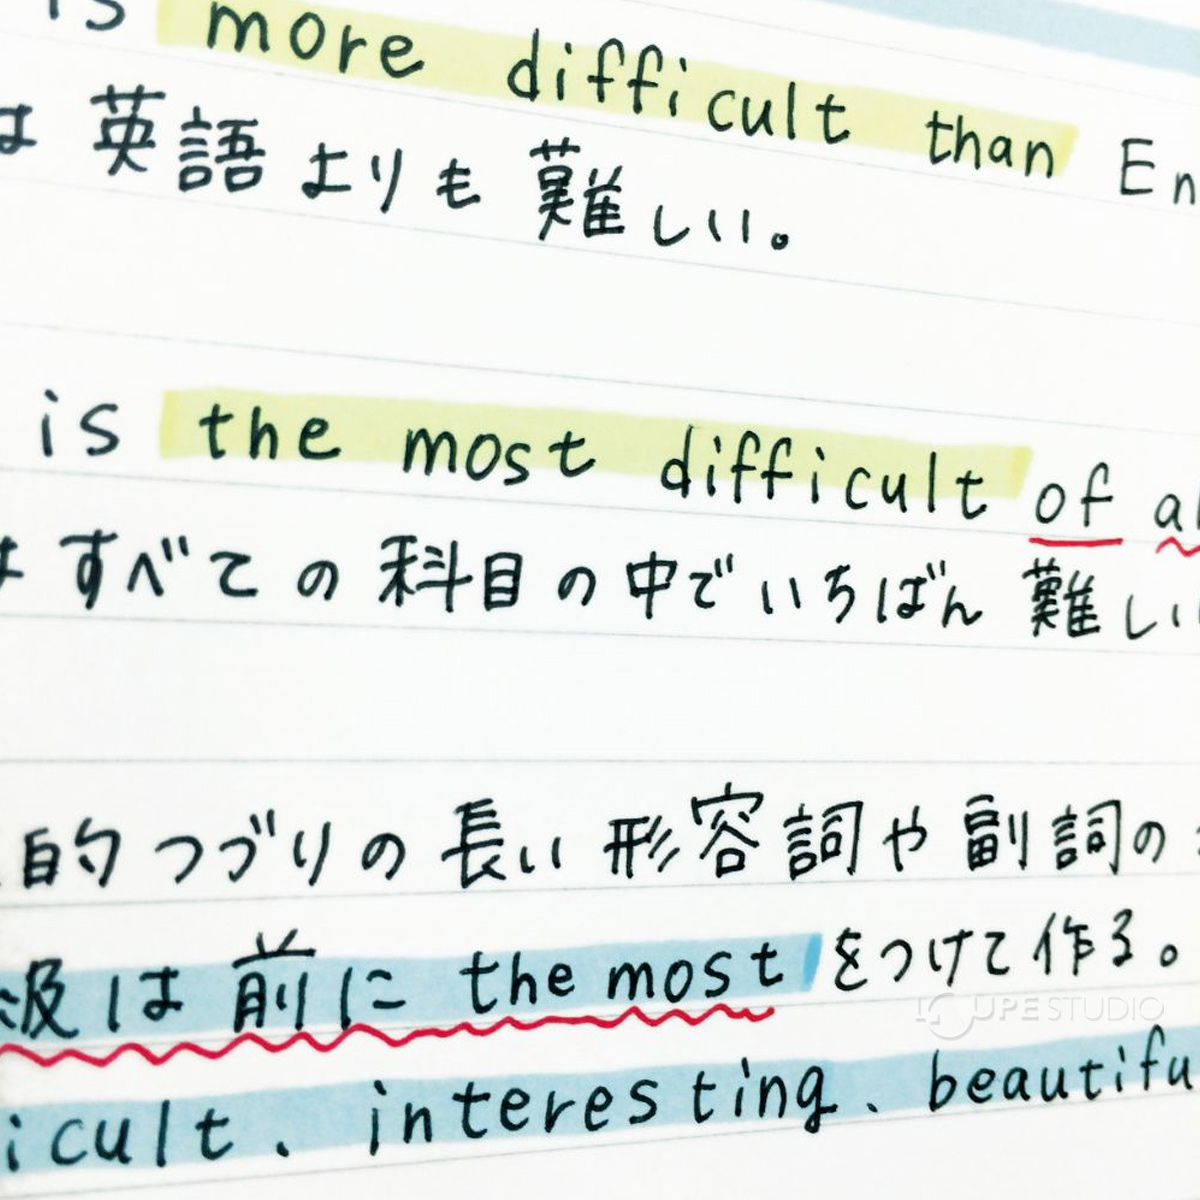 is more difficult than En
は 英語 よりも 難しい。
is the most difficult of al
は すべての 科目の 中で いちばん 難しい
的 つづりの 長い 形容詞や 副詞の
級は 前に the most をつけて 作る。
LOUPE STUDIO
icult. interesting、beautifu